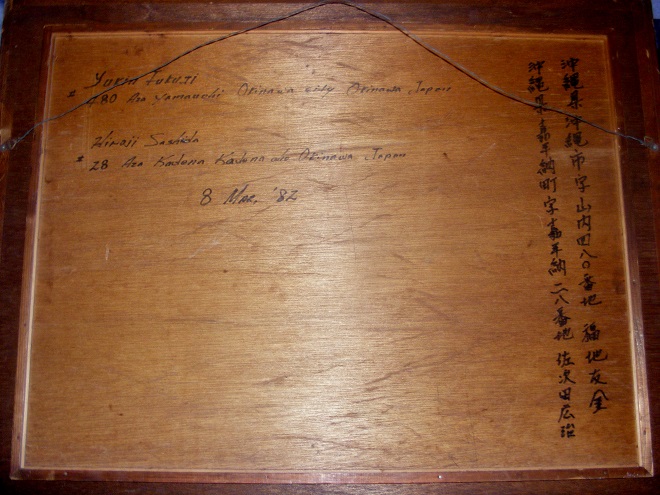 Fukuji
# 480 Aza Yamauchi Okinawa city Okinawa Japan
Hiroji Sashida
# 28 Aza Kadena Kadena Okinawa Japan
8 Mar, '82
沖縄県沖縄市字山内四八〇番地 福地友金
沖縄県嘉手納町字嘉手納二八番地 佐次田広